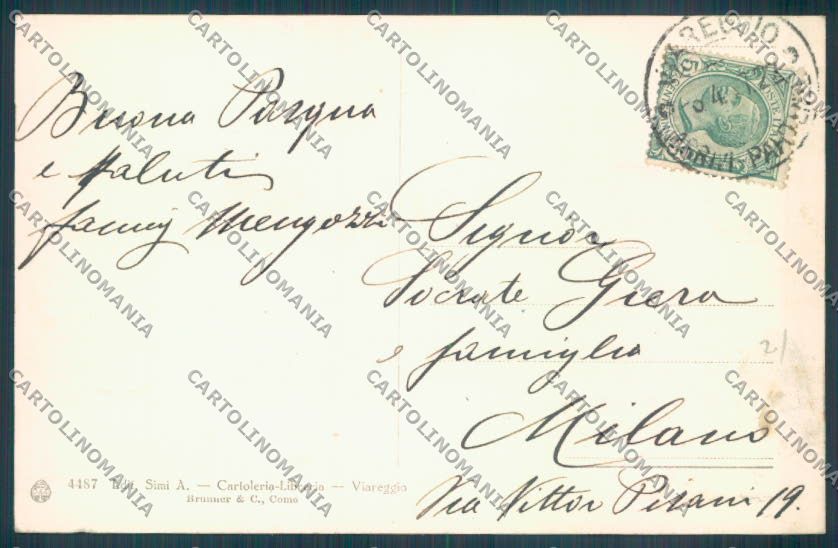 Buona Pasqua
e saluti
Fanny Mengozzi
Signor
Socrate Giera
e famiglia
Milano
Via Vittor Pisani 19.
4487 Edit. Simi A. — Cartoleria-Libreria — Viareggio
Brunner & C., Como
2/
CARTOLINOMANIA